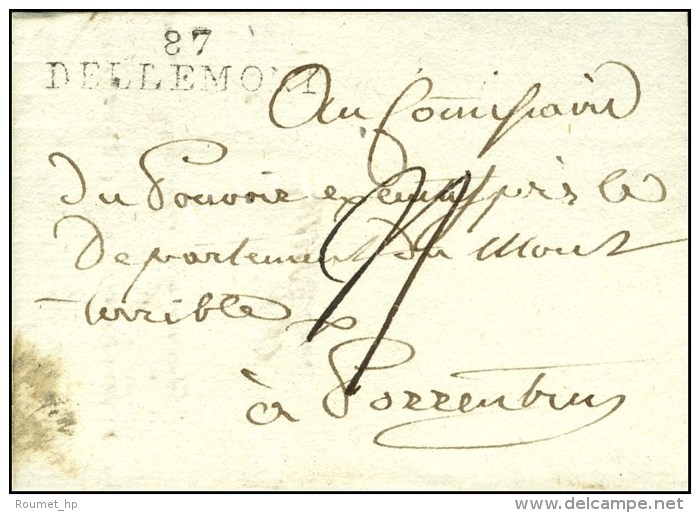 87
DELLEMONT
Au Commissaire
du Pouvoir executif près le
Departement du Mont
terrible
à Porrentruy
Roumet_hp
delcampe.net